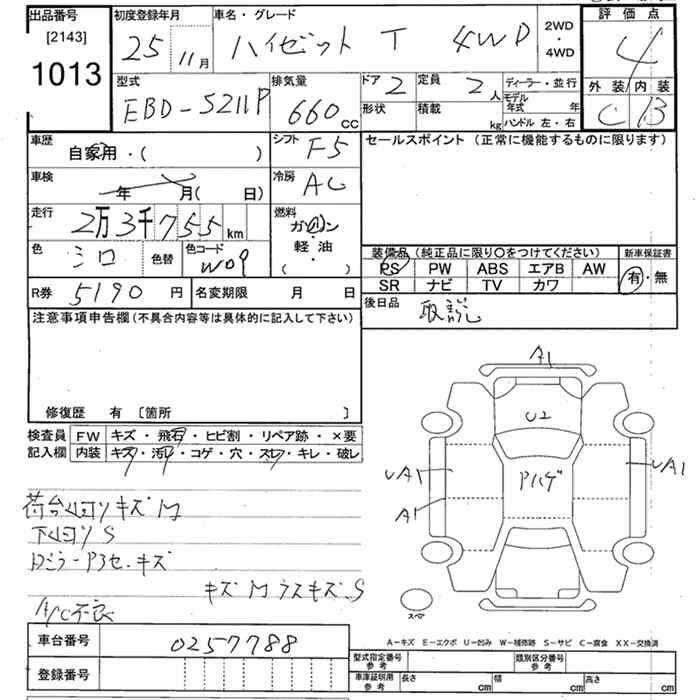 出品番号
[2143]
1013
初度登録年月
25年 11月
車名・グレード
ハイゼット T 4WD
2WD・4WD
評価点
4
外装 内装
C B
型式
EBD-S211P
排気量
660cc
ドア 2
定員 2人
形状
積載 kg
ディーラー・並行
モデル年式 年
ハンドル 左・右
車歴
自家用・( )
シフト F5
セールスポイント (正常に機能するものに限ります)
車検
年 月( 日)
冷房 AC
走行
2万3千755km
燃料
ガソリン
軽・油
( )
色
シロ
色替
色コード
W09
装備品 (純正品に限り○をつけてください)
PS PW ABS エアB AW
SR ナビ TV カワ
新車保証書
有・無
R券 5190円
名変期限 月 日
後日品
取説
注意事項申告欄 (不具合内容等は具体的に記入して下さい)
修復歴 有 〔箇所 〕
検査員記入欄
FW キズ・飛石・ヒビ割・リペア跡・×要
内装 キズ・汚レ・コゲ・穴・スレ・キレ・破レ
荷台凹凸ソリキズM
下凹ソリS
キズM ラスキズ.S
A/C不良
A1
U2
Pハゲ
UA1
UA1
A1
スペア
A-キズ E-エクボ U-凹み W-補修跡 S-サビ C-腐食 XX-交換済
車台番号 0257788
登録番号
型式指定番号 参考
類別区分番号 参考
車庫証明用 参考
長さ cm
幅 cm
高さ cm